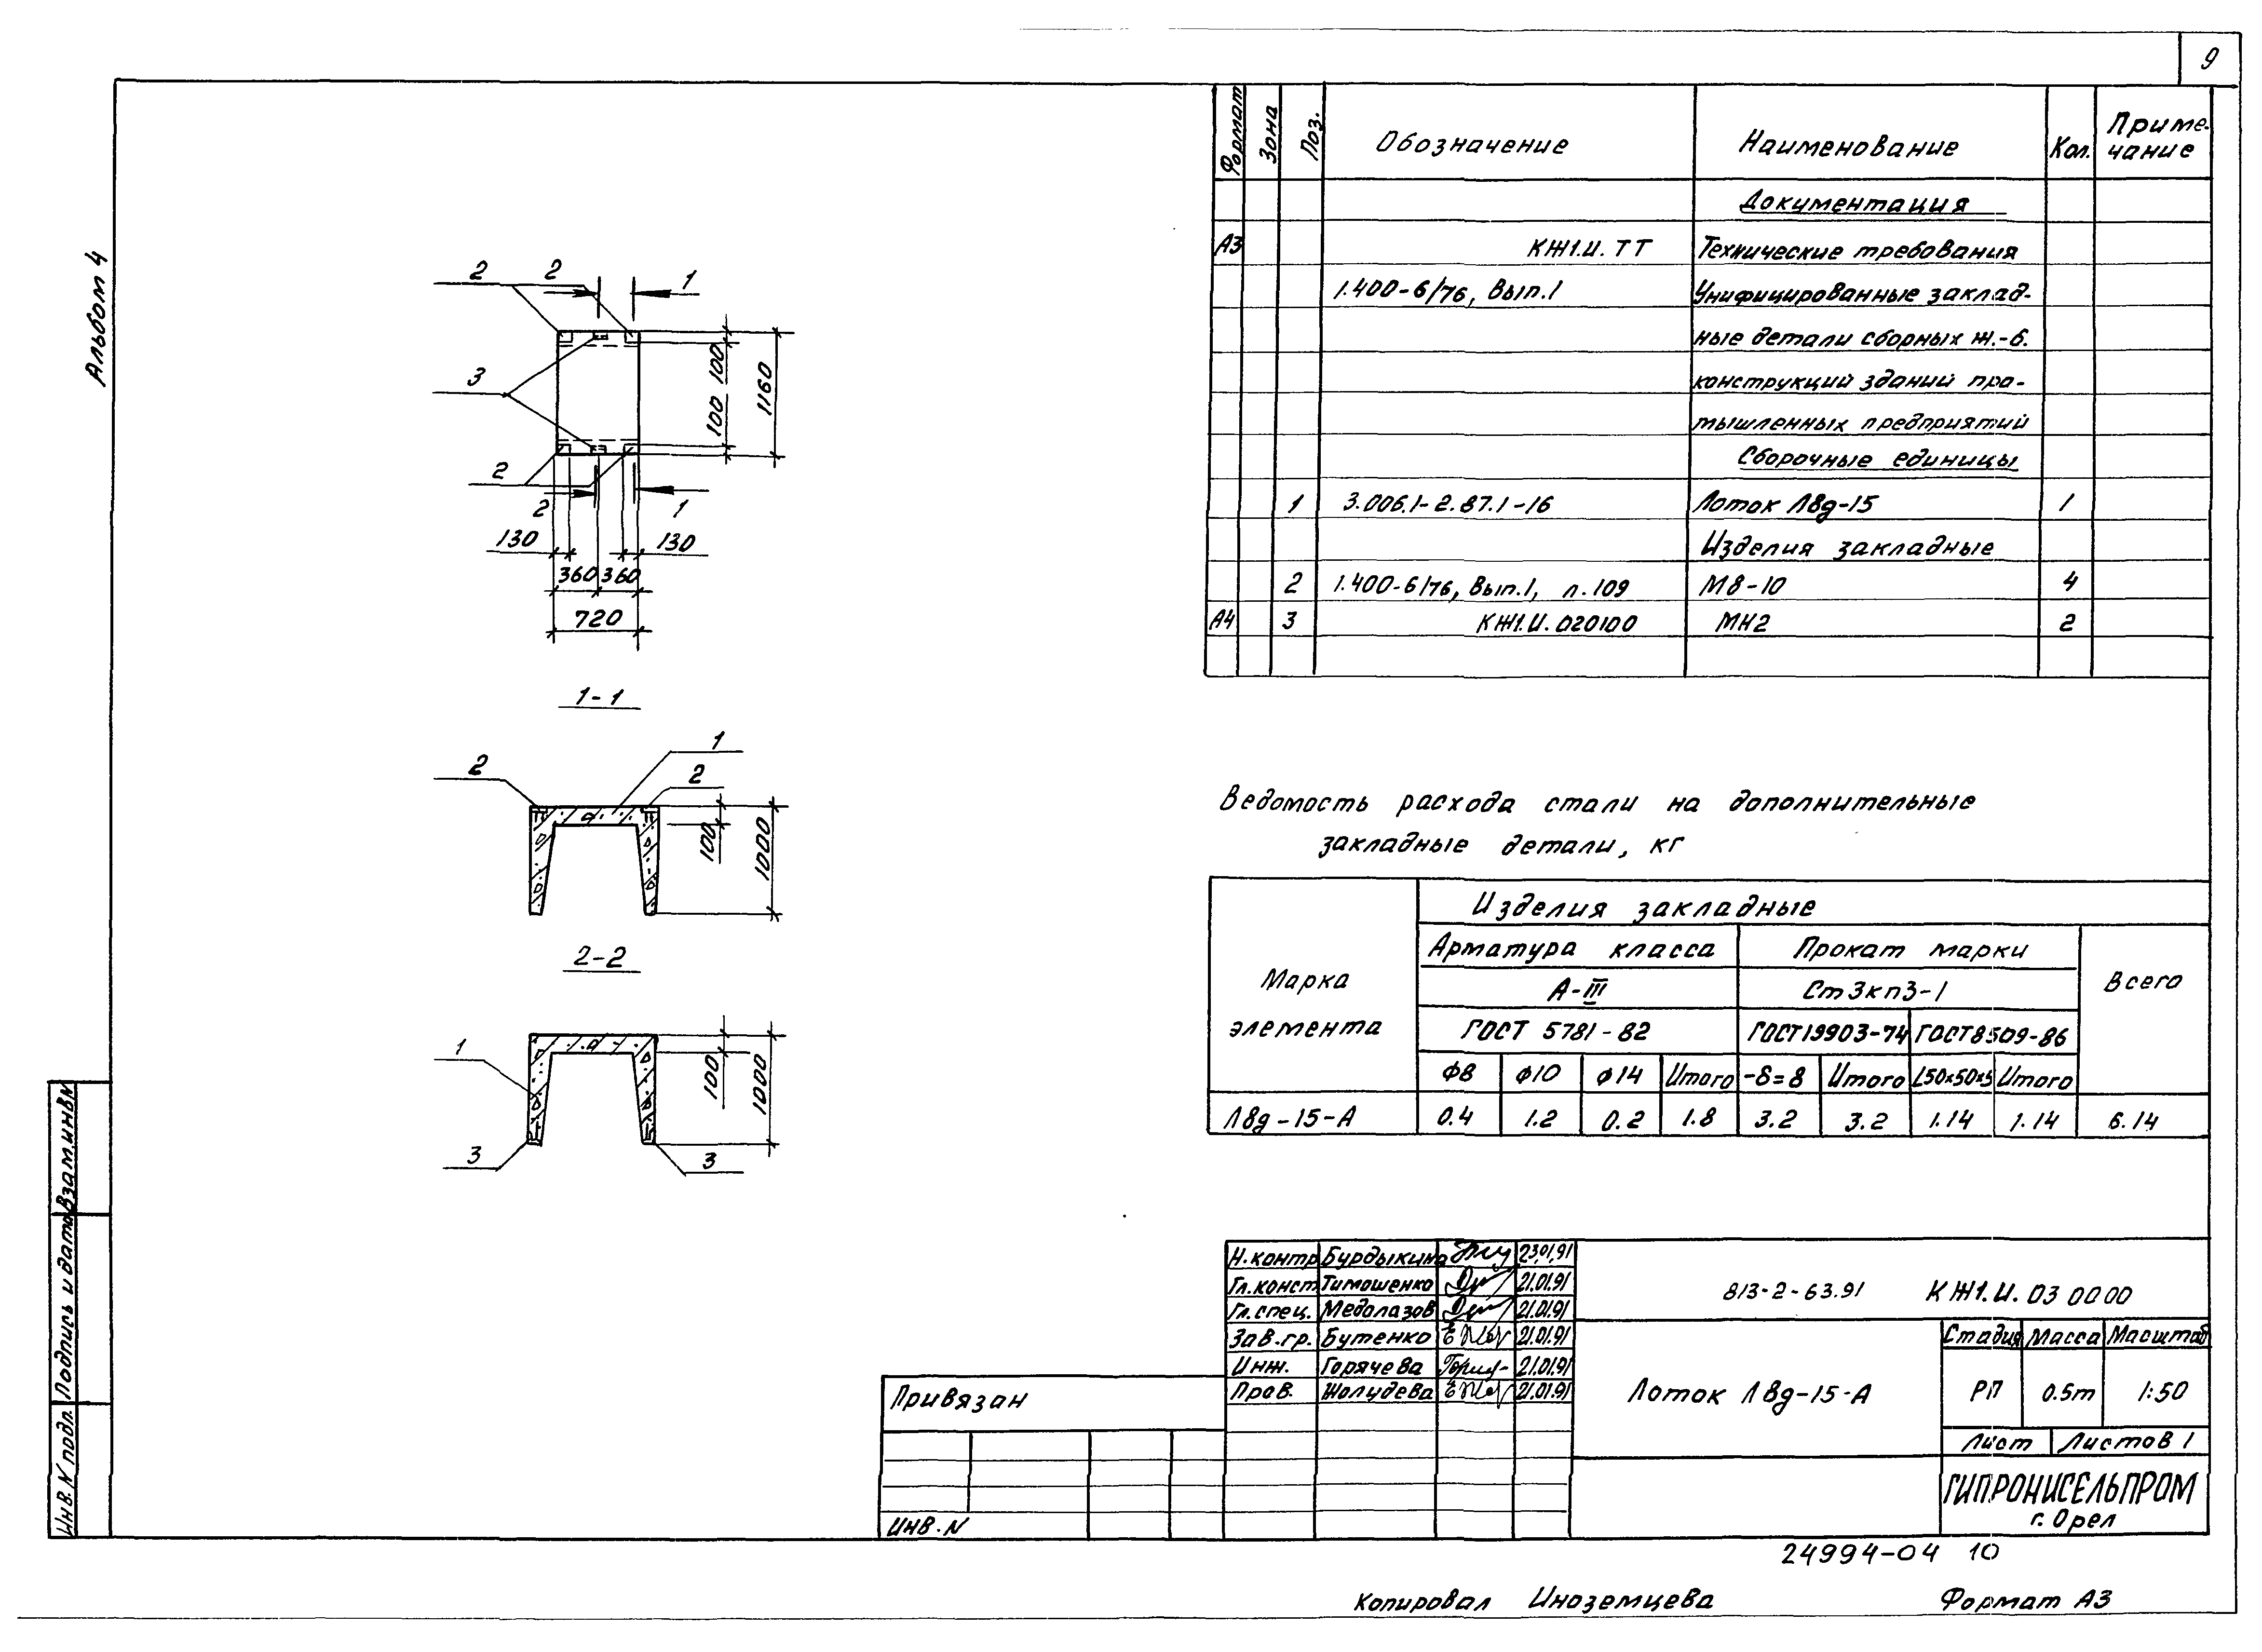 9
Альбом 4
2 2 1
3
2
2 1
100 100
1160
130 130
360 360
720
1-1
2 1 2
100 1000
2-2
1
100 1000
3 3
Формат Зона Поз. Обозначение Наименование Кол. Приме-
чание
Документация
А3 КЖ1.И.ТТ Технические требования
1.400-6/76, Вып.1 Унифицированные заклад-
ные детали сборных ж.-б.
конструкций зданий про-
мышленных предприятий
Сборочные единицы
1 3.006.1-2.87.1-16 Лоток Л8д-15 1
Изделия закладные
2 1.400-6/76, Вып.1, л.109 М8-10 4
А4 3 КЖ1.И.020100 МН2 2
Ведомость расхода стали на дополнительные
закладные детали, кг
Марка
элемента
Изделия закладные
Арматура класса Прокат марки
Всего
А-III Ст3кп3-1
ГОСТ 5781-82 ГОСТ19903-74 ГОСТ8509-86
Ф8 Ф10 Ф14 Итого -δ=8 Итого L50х50х5 Итого
Л8д-15-А 0.4 1.2 0.2 1.8 3.2 3.2 1.14 1.14 6.14
Н.контр Бурдыкина 23.01.91
Гл.конст Тимошенко 21.01.91
Гл.спец. Медолазов 21.01.91
Зав.гр. Бутенко 21.01.91
Инж. Горячева 21.01.91
Пров. Жолудева 21.01.91
813-2-63.91 КЖ1.И.030000
Лоток Л8д-15-А
Стадия Масса Масштаб
РП 0.5т 1:50
Лист Листов 1
ГИПРОНИСЕЛЬПРОМ
г. Орел
Привязан
ИНВ.N
Взам.инв.N
Подпись и дата
Инв.N подл.
24994-04 10
Копировал Иноземцева Формат А3